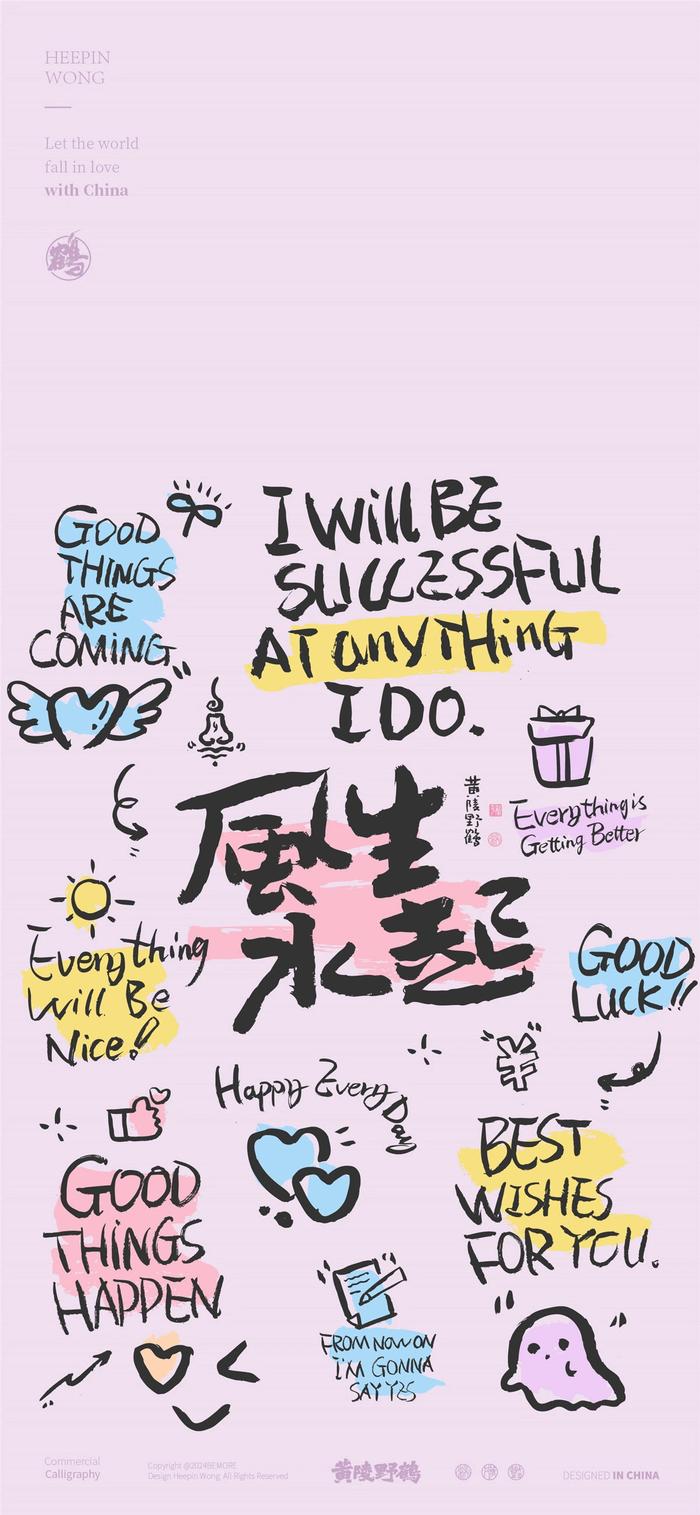 HEEPIN
WONG
Let the world
fall in love
with China
鹤
GOOD
THINGS
ARE
COMING
I Will BE
SUCCESSFUL
AT anyTHinG
I DO.
Everything is
Getting Better
風生
水起
黄陵野鹤
Everything
Will Be
Nice!
GOOD
LUCK!!
¥
Happy Every Day
GOOD
THiNGS
HAPPEN
BEST
WISHES
FOR YOU.
FROM NOW ON
I'M GONNA
SAY YES
Commercial
Calligraphy
Copyright @2024BEMORE
Design Heepin Wong. All Rights Reserved
黄陵野鹤
DESIGNED IN CHINA